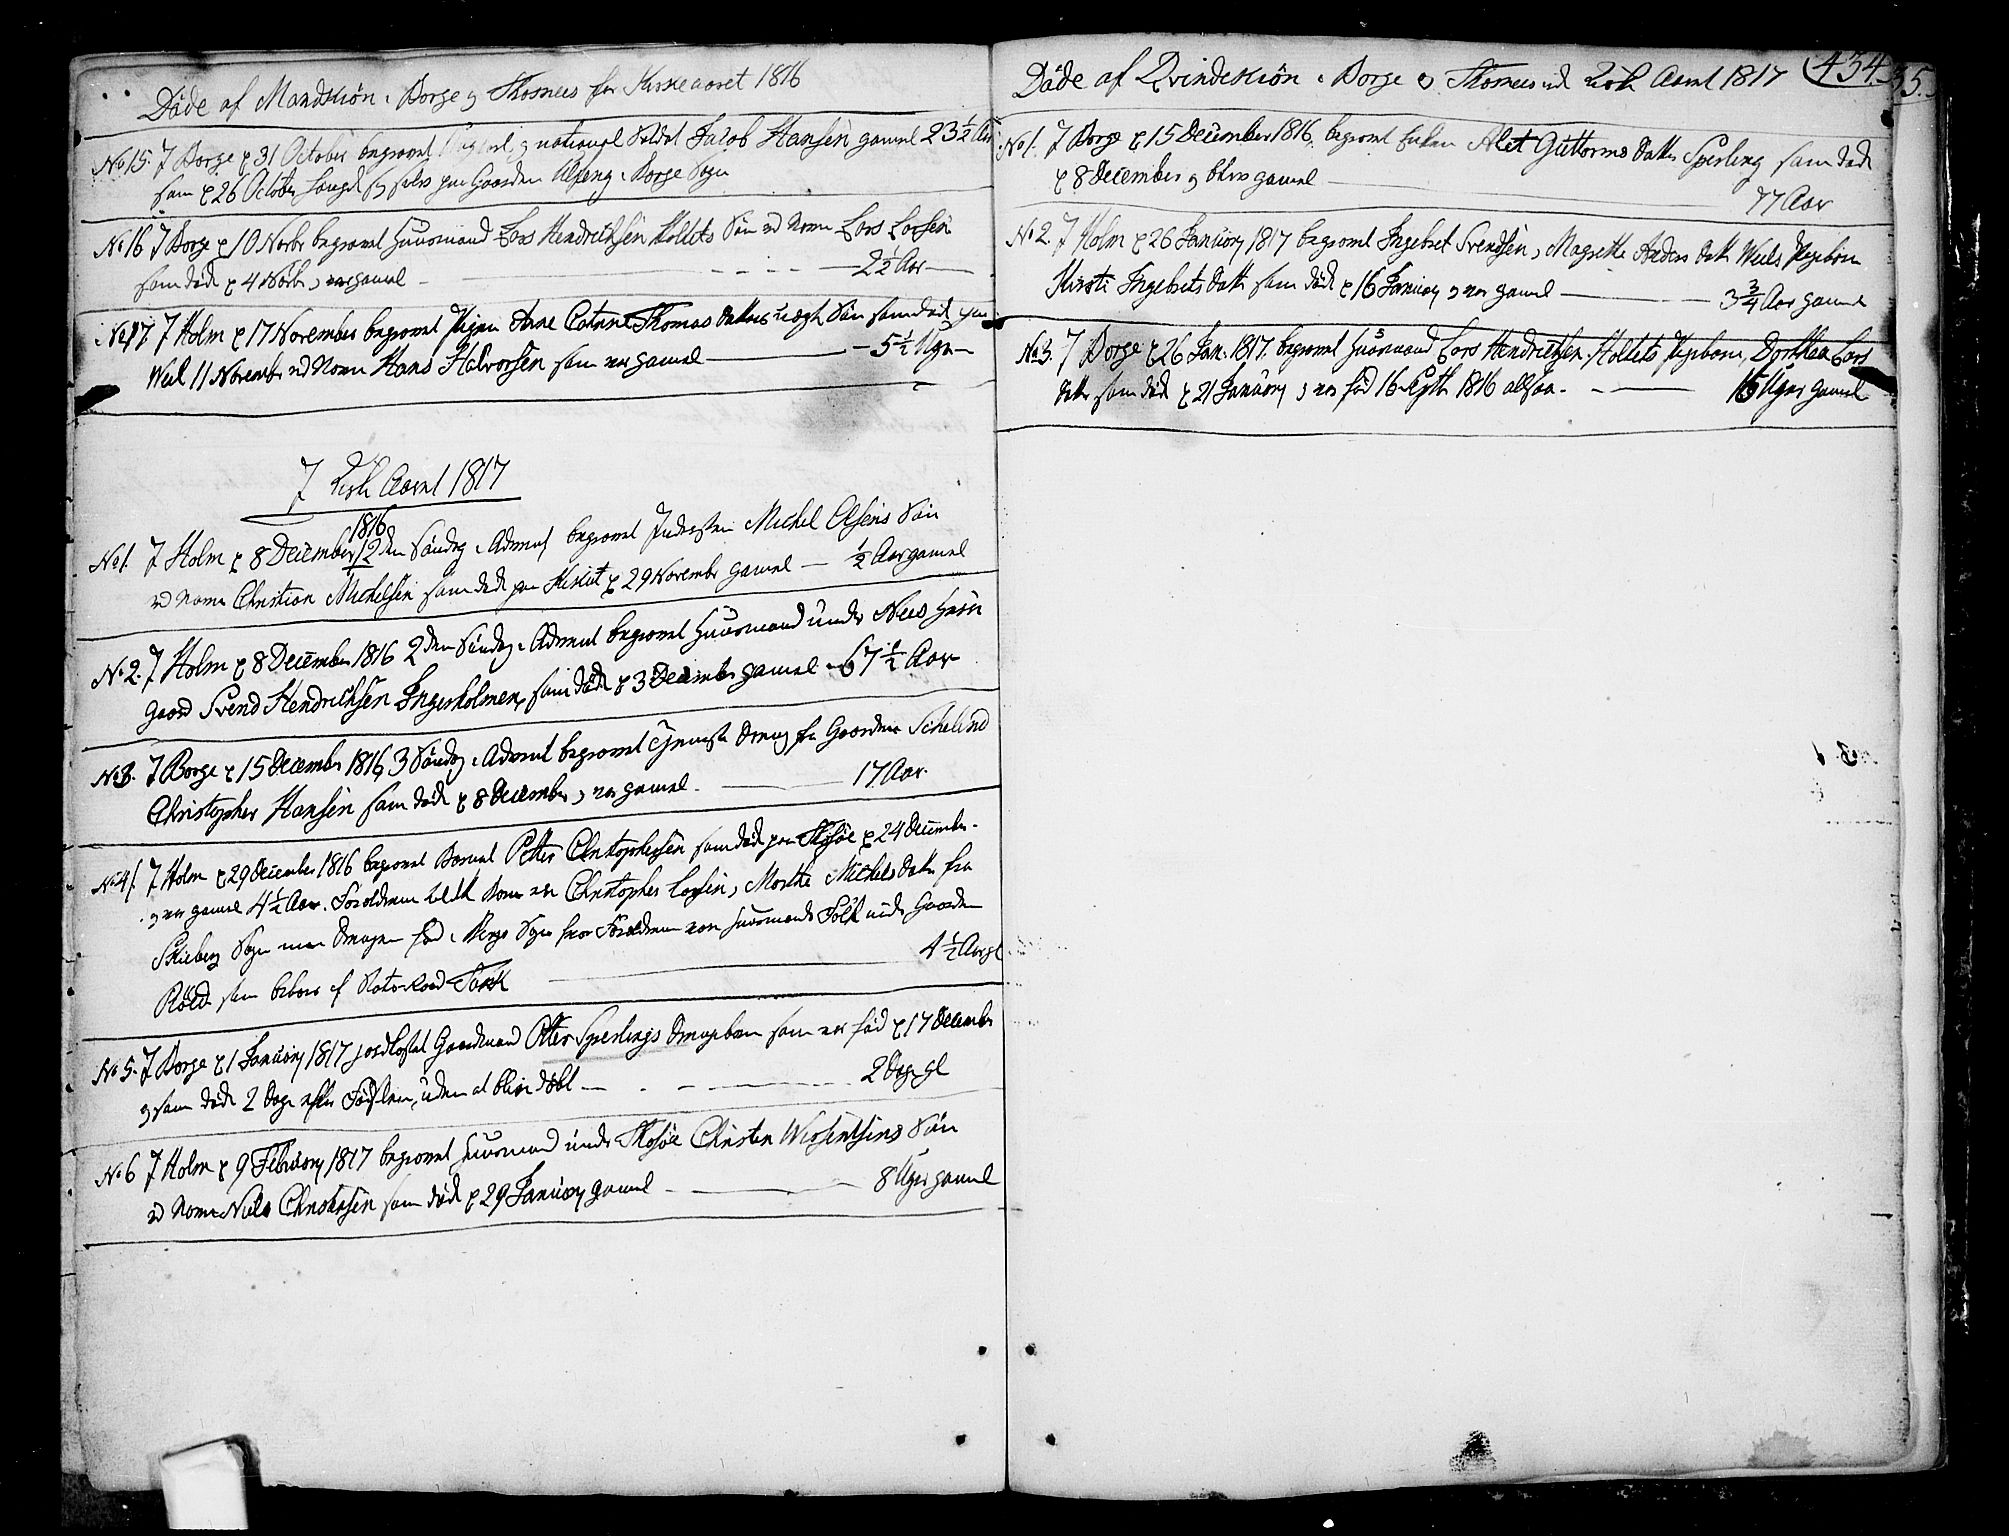 Døde af Mandkiøn i Borge og Thorsnes for Kirkeaaret 1816
No 15. I Borge d 31 October begravet og national Soldat Jacob Hansen gammel 23 1/2 Aar
som d 26 October hængde sig selv paa Gaarden Alseng i Borge Sogn
No 16 I Borge d 10 Novbr begravet Huusmand Lars Hendrichsen Holtets Søn ved Navn Lars Larsen
som døde d 4 Novbr og var gammel - 2 1/2 Aar
No 17. I Holm d 17 November begravet Pigen Anne Catrine Thomas datters uægte Søn som døde paa
Weel 11 November ved Navn Hans Halvorsen som var gammel - 5 1/2 Uge
I Kirke Aaret 1817
No 1. I Holm d 8 December 1816 2den Søndag i Advent begravet Indersten Michel Olsens Søn
ved Navn Christian Michelsen som døde paa d 29 Novembr gammel - 1/2 Aar gammel
No 2. I Holm d 8 December 1816 2den Søndag i Advent begravet Huusmand under Nees Herre
gaard Svend Hendrichsen Ingerholmen, som døde d 3 December gammel 67 1/2 Aar
No 3. I Borge d 15 December 1816, 3 Søndag i Advent begravet Dreng fra Gaarden
Christopher Hansen som døde d 8 December, og var gammel - 17 Aar.
No 4. I Holm d 29 December 1816 begravet Barnet Petter Christophersen som døde paa Thosøe d 24 December
og var gammel 4 1/2 Aar. Forældrene til dette Barn er Christopher Larsen og Marthe Michels datter fra
Skieberg Sogn men Drengen fød i Berge Sogn hvor Forældrene vare Huusmands Folk under Gaarden
Røed som beboes af Torsk 4 1/2 Aar gl
No 5. I Borge d 1 Januarj 1817 jordfæstet Gaardmand Petter Sperlings Drengebarn som var fød d 17 December
og som døde 2 Dage efter Fødselen, uden at blive døbt - 2 Dage gl
No 6 I Holm d 9 Februarj 1817 begravet Huusmand under Thosøe Christen Søn
ved Navn Niels Christensen som døde d 29 Januarj gammel - 8 Uger gammel
Døde af Qvindekiøn i Borge og Thorsnes ved Kirke Aaret 1817 434 35.
No 1. I Borge d 15 December 1816, begravet Enken Alet Guttorms datter Sperling som døde
d 8 December og blev gammel 77 Aar
No 2. I Holm d 26 Januarj 1817 begravet Ingebret Svendsen og Magrethe Anders datter Weels Pigebarn
Kirsti Ingebrets datter som døde d 16 Januarj og var gammel - 3 3/4 Aar gammel
No 3. I Borge d 26 Jan. 1817. begravet Huusmand Lars Hendrichsen Holtets Pigebarn, Dorthea Lars
datter som døde d 21 Januarj og var fød 16 Septb 1816 altsaa - 16 Uger gammel